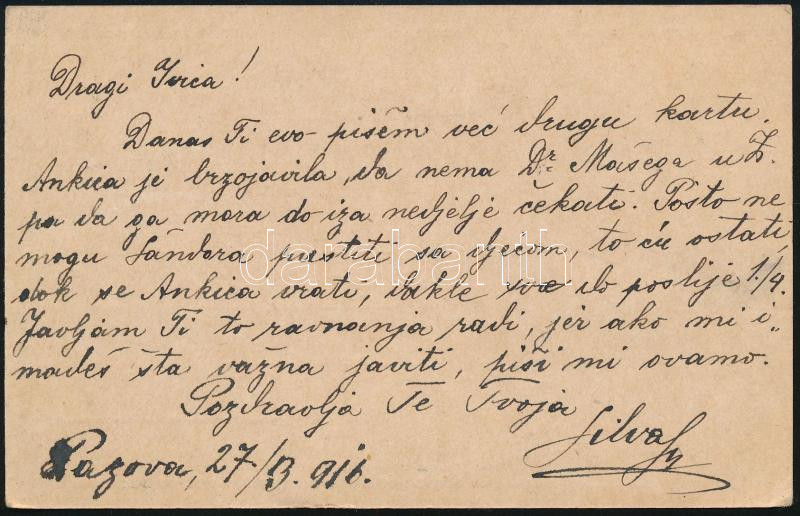 Dragi Ivica!
Danas Ti evo pišem već drugu kartu.
Ankica je brzojavila, da nema Dr. Mašega u Z.
pa da ga mora do iza nedjelje čekati. Pošto ne
mogu Šandora pustiti sa djecom, to ću ostati,
dok se Ankica vrati, dakle sve do poslije 1./4.
Javljam Ti to ravnanja radi, jer ako mi i„
madeš šta važna javiti, piši mi ovamo.
Pozdravlja Te Tvoja
Silva
Pazova, 27/3. 916.
darabanth